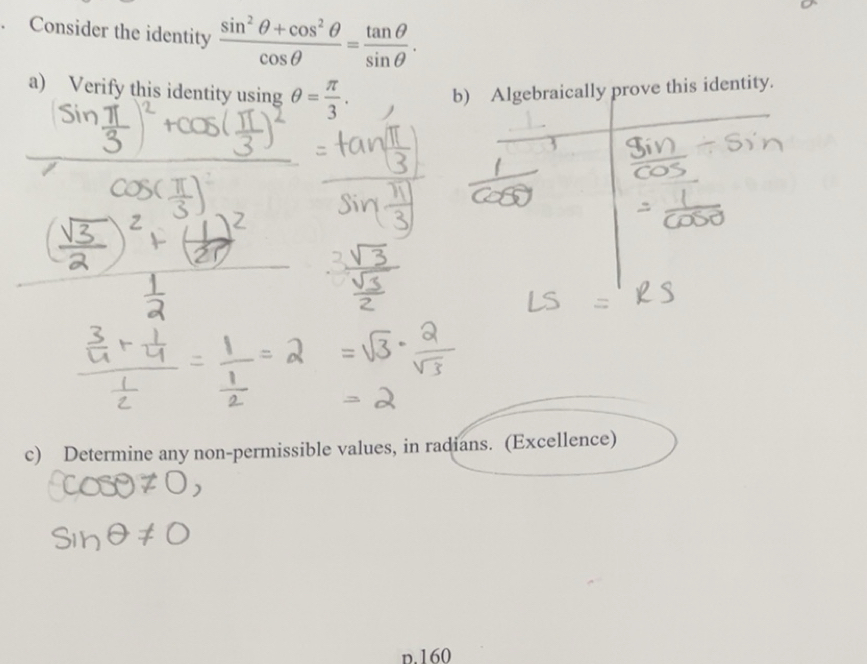 Consider the identity (sin² θ + cos² θ)/(cos θ) = (tan θ)/(sin θ).
a) Verify this identity using θ = π/3.
((sin π/3)² + cos(π/3)²)/(cos(π/3)) = (tan(π/3))/(sin π/3)
((√3/2)² + (1/2)²)/(1/2)
√3/(√3/2)
(3/4 + 1/4)/(1/2) = 1/(1/2) = 2
= √3 · 2/√3
= 2
b) Algebraically prove this identity.
1/cosθ
sin/cos ÷ sin
= 1/cosθ
LS = RS
c) Determine any non-permissible values, in radians. (Excellence)
cosθ ≠ 0,
sin θ ≠ 0
p.160